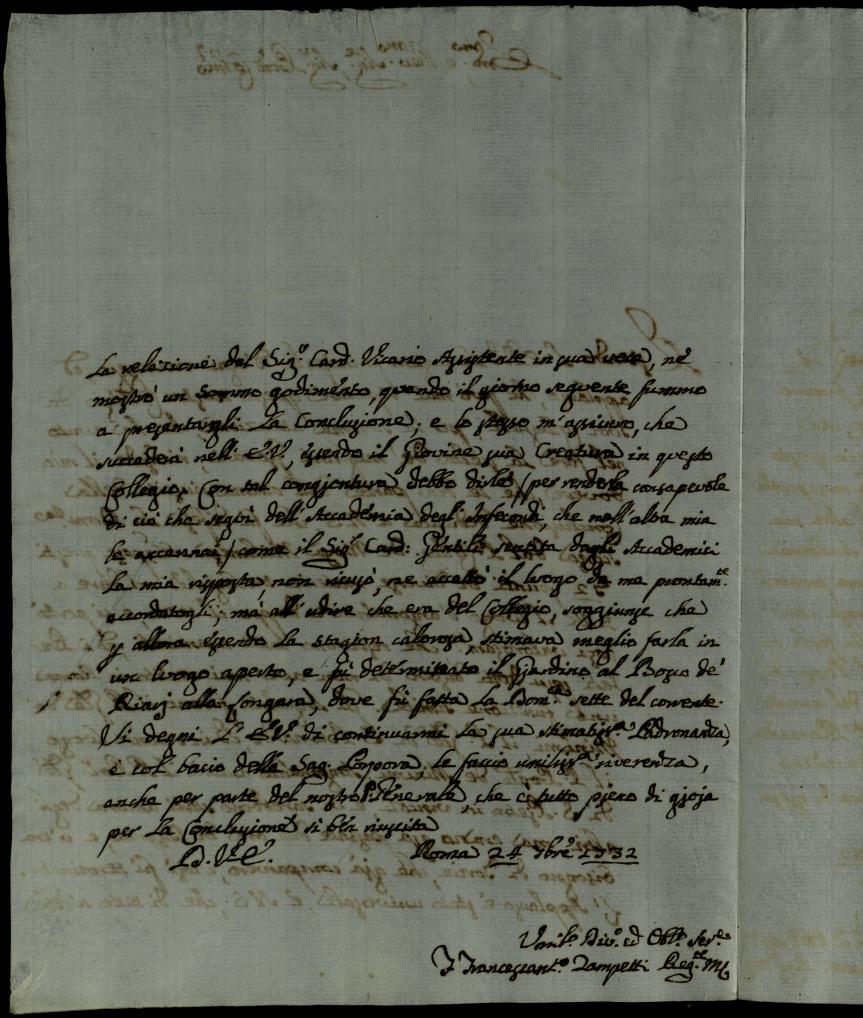 La relazione del Sig.r Card. Vicario Assistente in sua vece, ne
mostrò un sommo godimento, quando il giorno seguente fummo
a presentargli La Conclusione; e lo stesso m'assicuro, che
succederà nell'E.V., essendo il Giovine sua Creatura in questo
Collegio. Con tal congjentura debbo dirle (per renderla consapevole
di ciò che seguì dell'Accademia degl'Infecondi, che nell'altra mia
le accennai) come il Sig.r Card: Gentili sentita dagli Accademici
La mia risposta, non ricusò, ne accettò il luogo da me prontam.te
accordatogli; mà all'udire che era del Collegio, soggiunse che
p allora essendo La stagion calorosa, stimava meglio farla in
un luogo aperto, e fù determinato il Giardino al Bosco de'
Riarj alla Longara, dove fù fatta La Dom.ca sette del corrente.
Si degni L'E.V. di continuarmi La sua stimatiss.a Padronanza,
e col bacio della Sag. Porpora, le faccio umiliss.a riverenza,
anche per parte del nostro P. Generale, che è tutto pieno di gioja
per La Conclusione sì ben riuscita
Roma 24 7bre 1732
D. V. E.
Umil.o Div.o ed Obb.o Ser.e
F Francescant.o Zampetti Reg.te